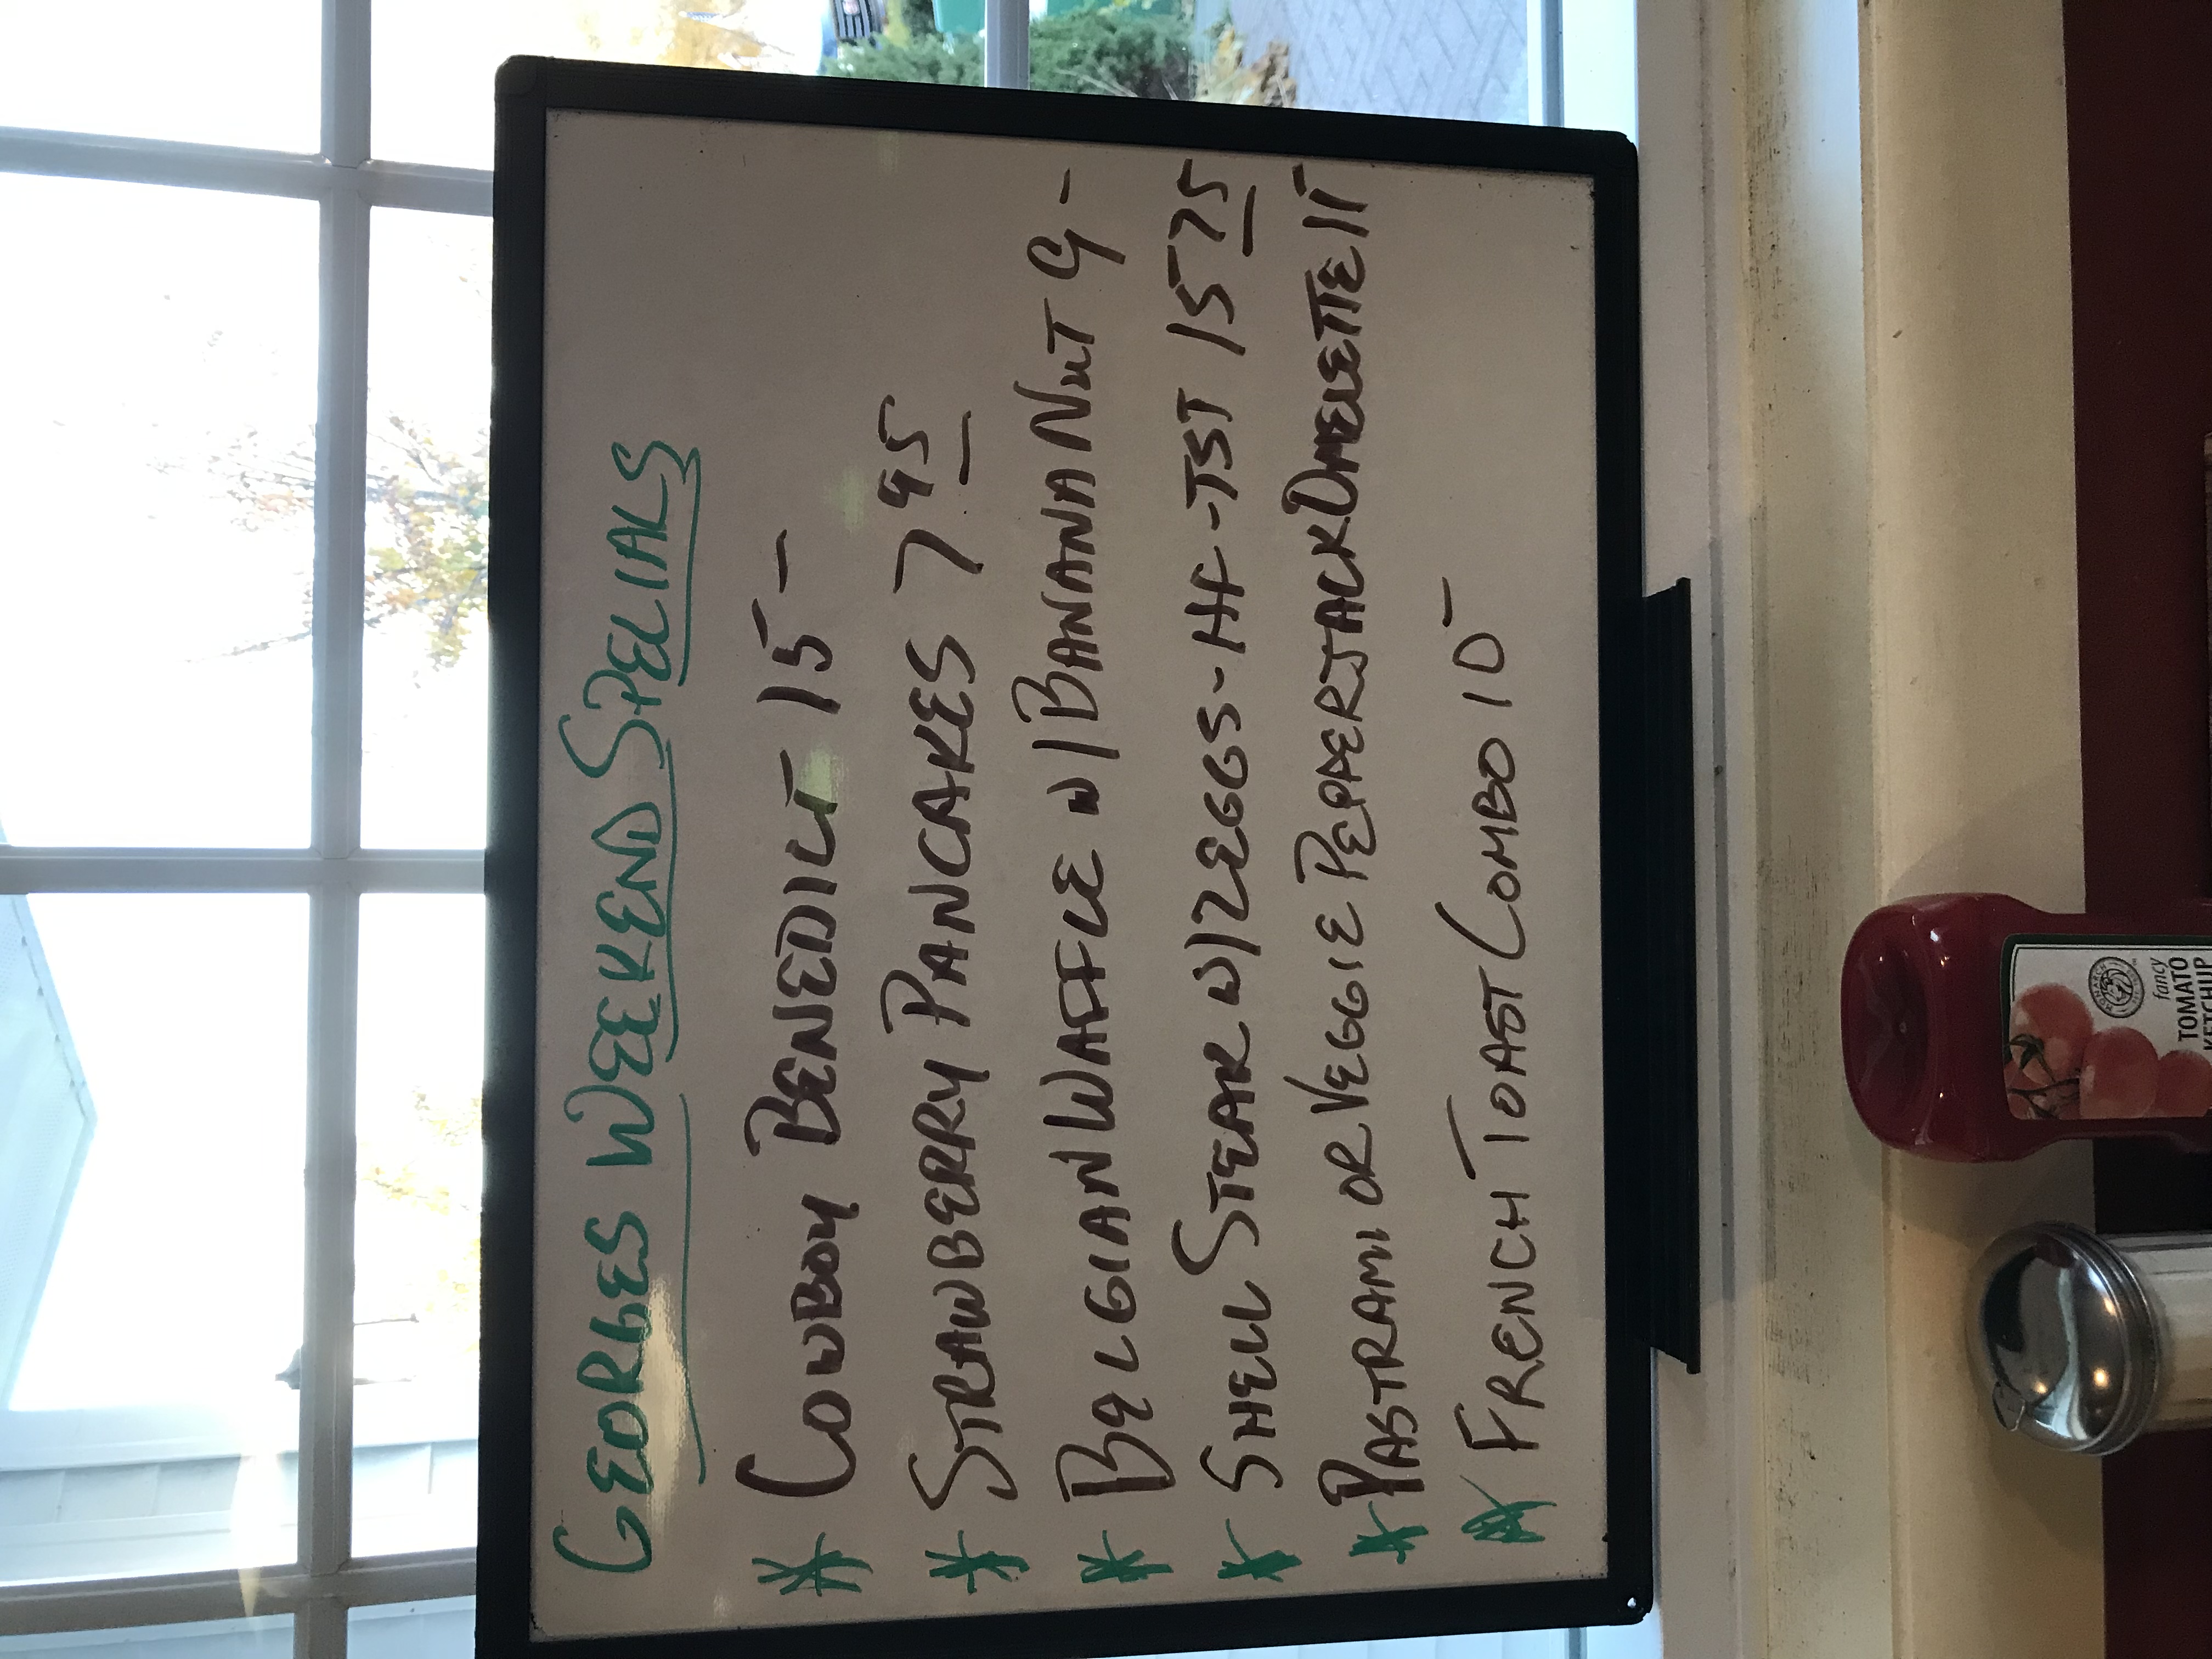 GEORGES WEEKEND SPECIALS
* COWBOY BENEDICT 15-
* STRAWBERRY PANCAKES 7 95
* BELGIAN WAFFLE W/BANANA NUT 9-
* SHELL STEAK W/2EGGS-HF-TST 15 75
* PASTRAMI OR VEGGIE PEPPERJACK OMELETTE 11-
* FRENCH TOAST COMBO 10-
MONARCH
fancy
TOMATO
KETCHUP